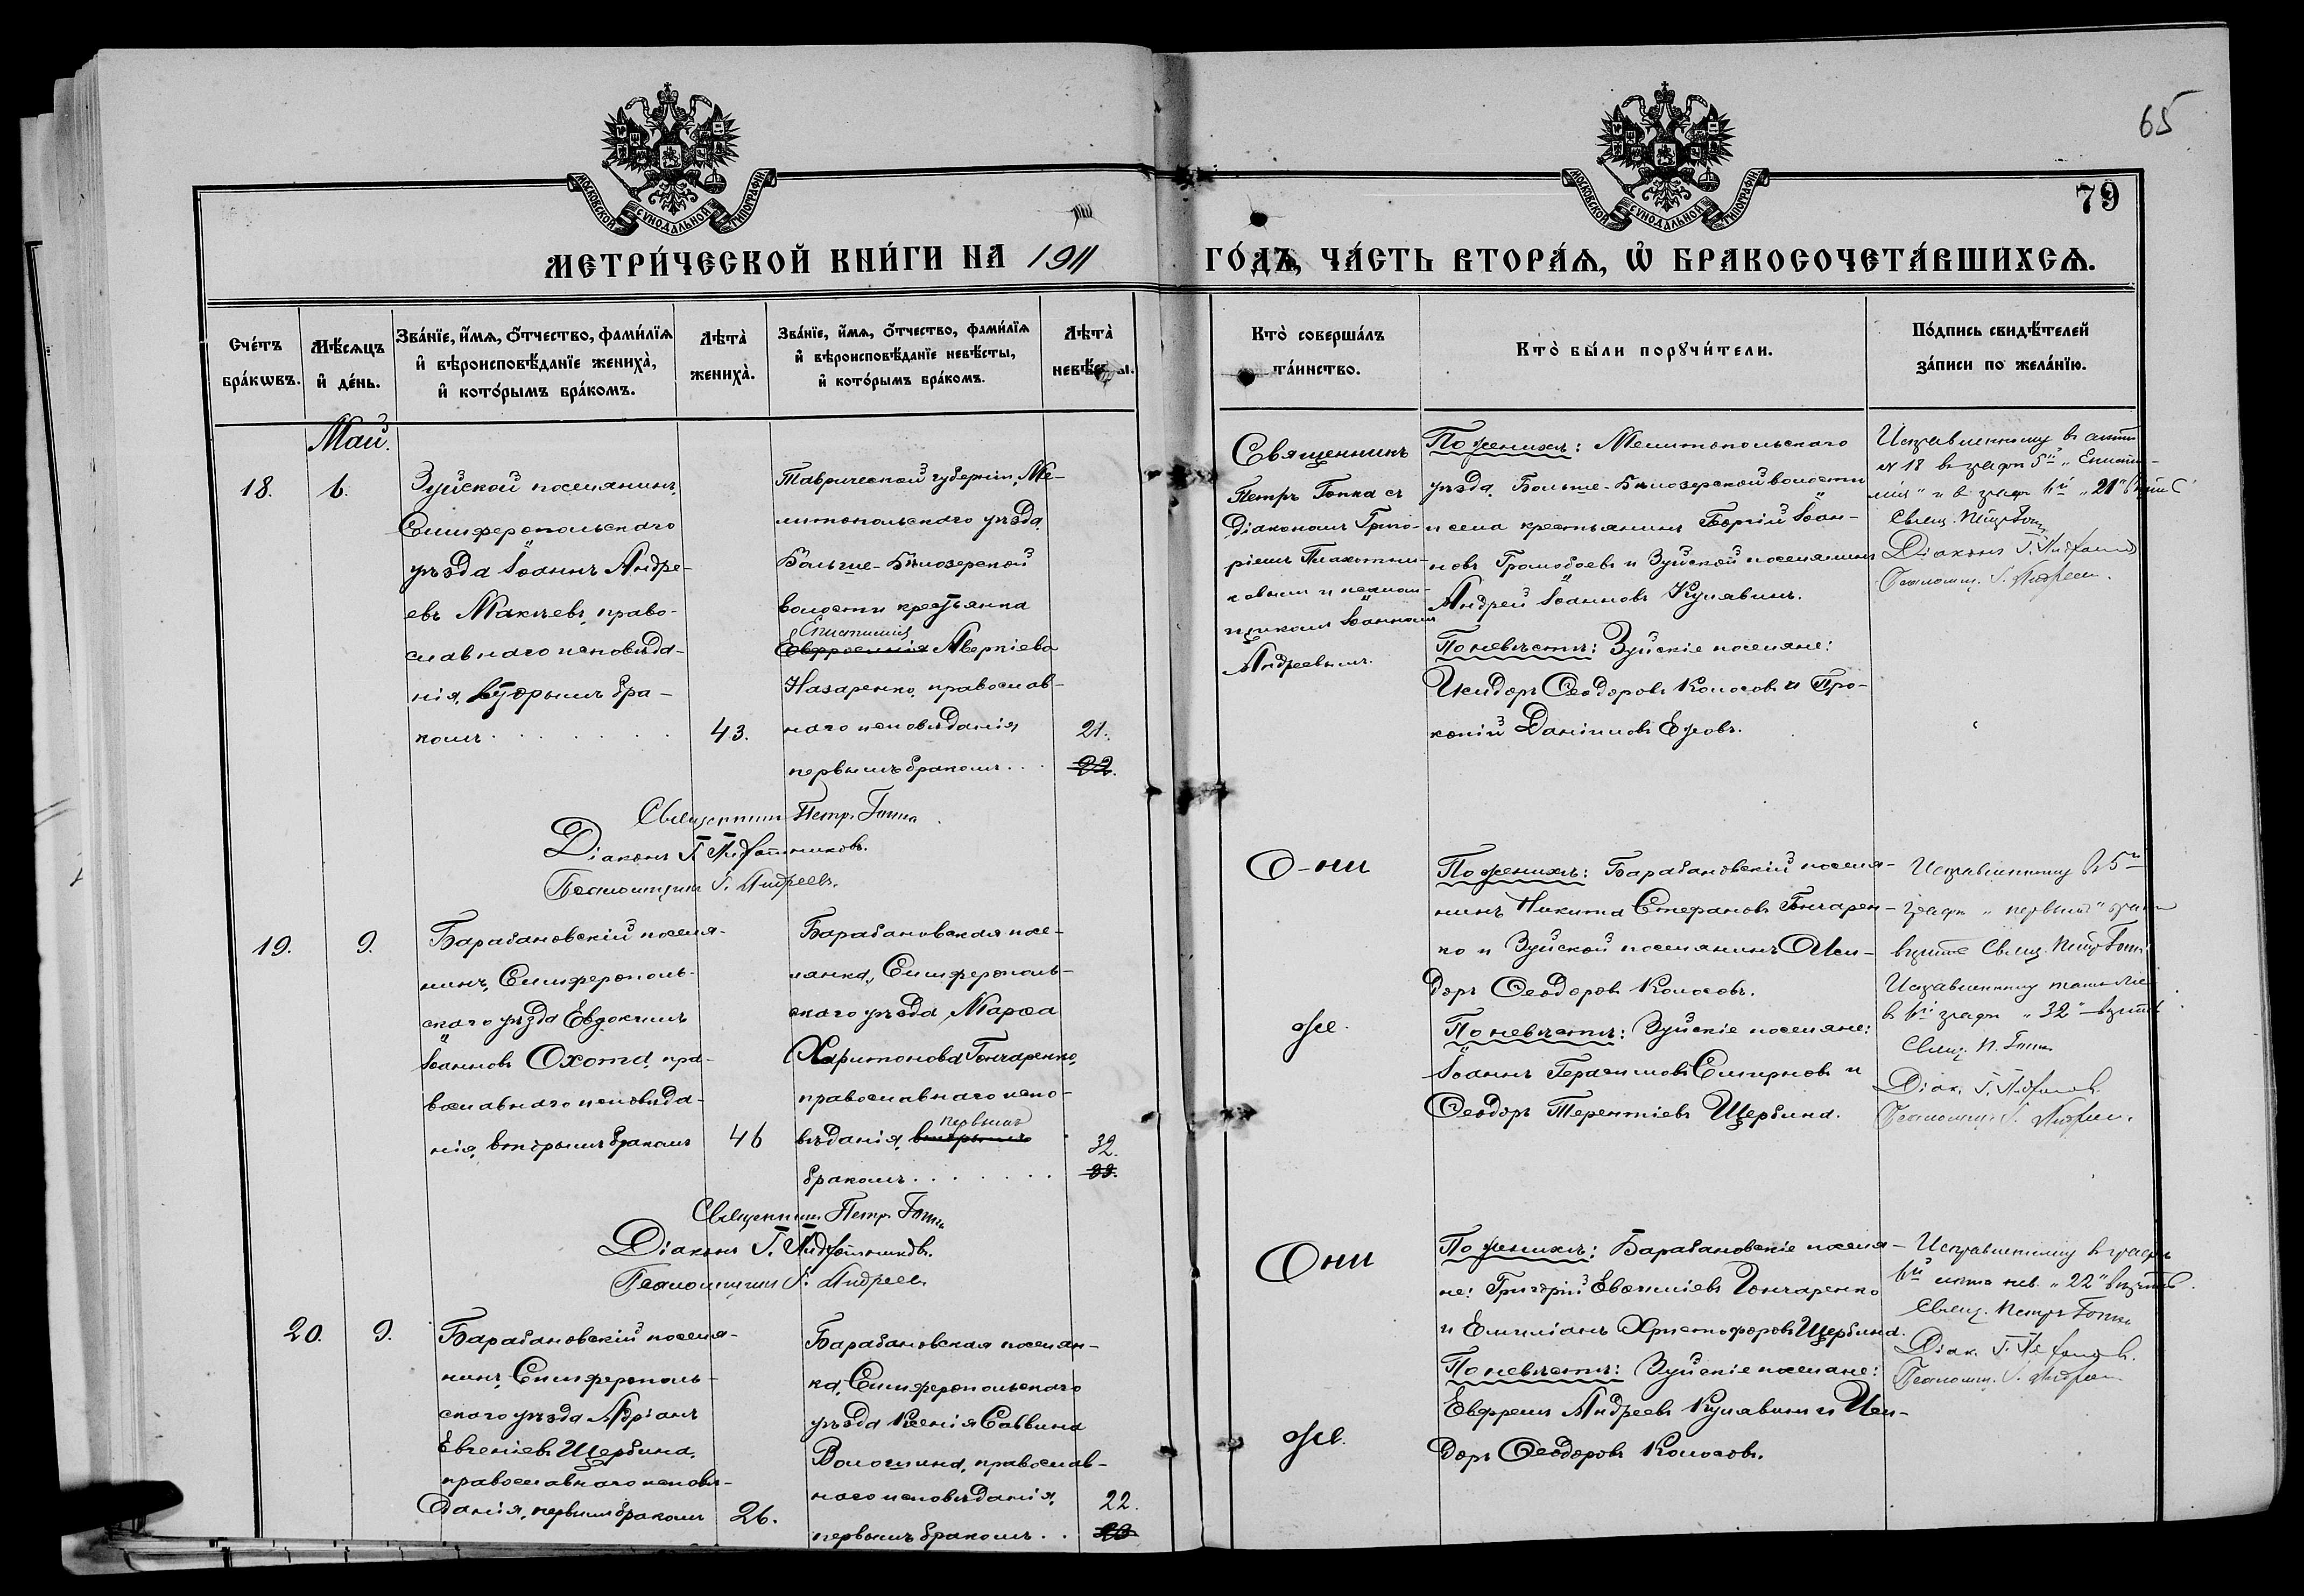 65
79
МОСКОВСКОЙ СѴНОДАЛЬНОЙ ТИПОГРАФІИ
МОСКОВСКОЙ СѴНОДАЛЬНОЙ ТИПОГРАФІИ
МЕТРИ́ЧЕСКОЙ КНИ́ГИ НА 1911
ГО́ДЪ, ЧА́СТЬ ВТОРА́Ѧ, Ѡ҆ БРАКОСОЧЕТА́ВШИХСѦ.
Сче́тъ
бра́кѡвъ.
Мѣ́сѧцъ
и҆ де́нь.
Зва́нїе, и҆́мѧ, ѻ҆́тчество, фами́лїѧ
и҆ вѣроисповѣ́данїе жениха̀,
и҆ кото́рымъ бра́комъ.
Лѣта̀
жениха̀.
Зва́нїе, и҆́мѧ, ѻ҆́тчество, фами́лїѧ
и҆ вѣроисповѣ́данїе невѣ́сты,
и҆ кото́рымъ бра́комъ.
Лѣта̀
невѣ́сты.
Кто̀ соверша́лъ
та́инство.
Кто̀ бы́ли порꙋчи́тели.
По́дпись свидѣ́телей
за́писи по жела́нїю.
Май.
18.
6.
Зуйской поселянинъ,
Симферопольскаго
уѣзда Іоаннъ Андре-
евъ Макѣевъ, право-
славнаго исповѣда-
нія, вторымъ бра-
комъ . . . . . . .
43.
Таврической губерніи, Ме-
литопольскаго уѣзда,
Больше-Бѣлозерской
волости крестьянка
Епистимія
Евфросинія Аверкіева
Назаренко, православ-
наго исповѣданія,
первымъ бракомъ . . .
21.
22.
Священникъ Петръ Гопка
Діаконъ Г. Плахотниковъ.
Псаломщикъ І. Андреевъ.
Священникъ
Петръ Гопка съ
діакономъ Григо-
ріемъ Плахотни-
ковымъ и псалом-
щикомъ Іоанномъ
Андреевымъ.
По женихѣ: Мелитопольскаго
уѣзда, Больше-Бѣлозерской волости
и села крестьянинъ Георгій Іоан-
новъ Громобоевъ и Зуйской поселянинъ
Андрей Іоанновъ Кулявинъ.
По невѣстѣ: Зуйскіе поселяне:
Исидоръ Ѳеодоровъ Колосовъ и Про-
копій Даніиловъ Ежовъ.
Исправленному въ актѣ
№ 18 въ графѣ 5й „Еписти-
мія" и въ графѣ 6й „21" вѣрить
Свящ. Петръ Гопка
Діаконъ Г. Плахотник
Псаломщ. І. Андреевъ.
19.
9.
Барабановскій поселя-
нинъ, Симферополь-
скаго уѣзда Евдокимъ
Іоанновъ Охота, пра-
вославнаго исповѣда-
нія, вторымъ бракомъ
46
Барабановская посе-
лянка, Симферополь-
скаго уѣзда, Марѳа
Харитонова Гончаренко,
православнаго испо-
первымъ
вѣданія, вторымъ
бракомъ . . . . . . .
32.
33.
Священникъ Петръ Гопка
Діаконъ Г. Плахотниковъ.
Псаломщикъ І. Андреевъ
Они
же.
По женихѣ: Барабановскій поселя-
нинъ Никита Стефановъ Гончарен-
ко и Зуйской поселянинъ Иси-
доръ Ѳеодоровъ Колосовъ.
По невѣстѣ: Зуйскіе поселяне:
Іоаннъ Герасимовъ Смирновъ и
Ѳеодоръ Терентіевъ Щербина.
Исправленному въ 5й
графѣ „первымъ"
вѣрить Свящ. Петръ Гопка
Исправленному также
въ 6й графѣ „32" вѣрить
Свящ. П. Гопка
Діак. Г. Плахотников.
Псаломщ. І. Андреев.
20.
9.
Барабановскій поселя-
нинъ, Симферополь-
скаго уѣзда Адріанъ
Евгеніевъ Щербина,
православнаго исповѣ-
данія, первымъ бракомъ
26.
Барабановская поселян-
ка, Симферопольскаго
уѣзда Ксенія Саввина
Волошина, православ-
наго исповѣданія,
первымъ бракомъ . .
22.
23
Они
же.
По женихѣ: Барабановскіе поселя-
не: Григорій Евѳиміевъ Гончаренко
и Емиліанъ Христофоровъ Щербина.
По невѣстѣ: Зуйскіе поселяне:
Евфремъ Андреевъ Кулявинъ и Иси-
доръ Ѳеодоровъ Колосовъ.
Исправленному въ графѣ
6й лѣта нев. „22" вѣрить.
Свящ. Петръ Гопка
Діак. Г. Плахотников.
Псаломщ. І. Андреев